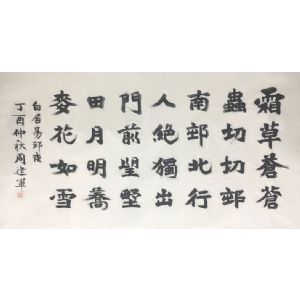 霜草蒼蒼
蟲切切邨
南邨北行
人絶獨出
門前望墅
田月明蕎
麥花如雪
白居易邨夜
丁酉仲秋周建軍